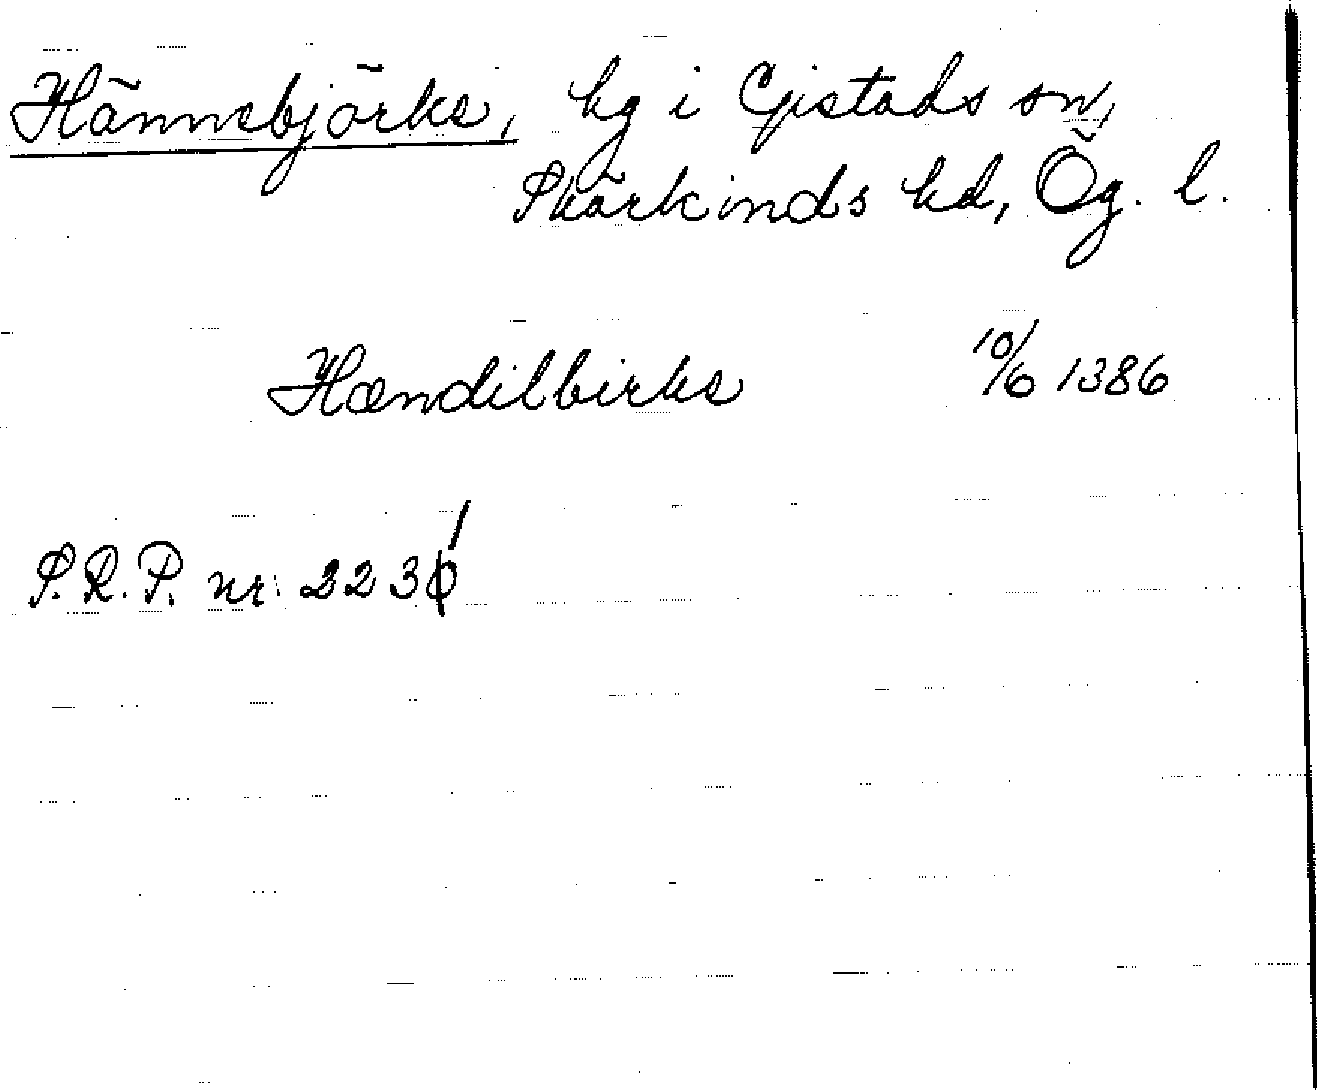 Hännebjörke, hg i Gistads sn,
Skärkinds hd, Ög. l.
Hændilbirke 10/6 1386
S.R.P. nr. 2231